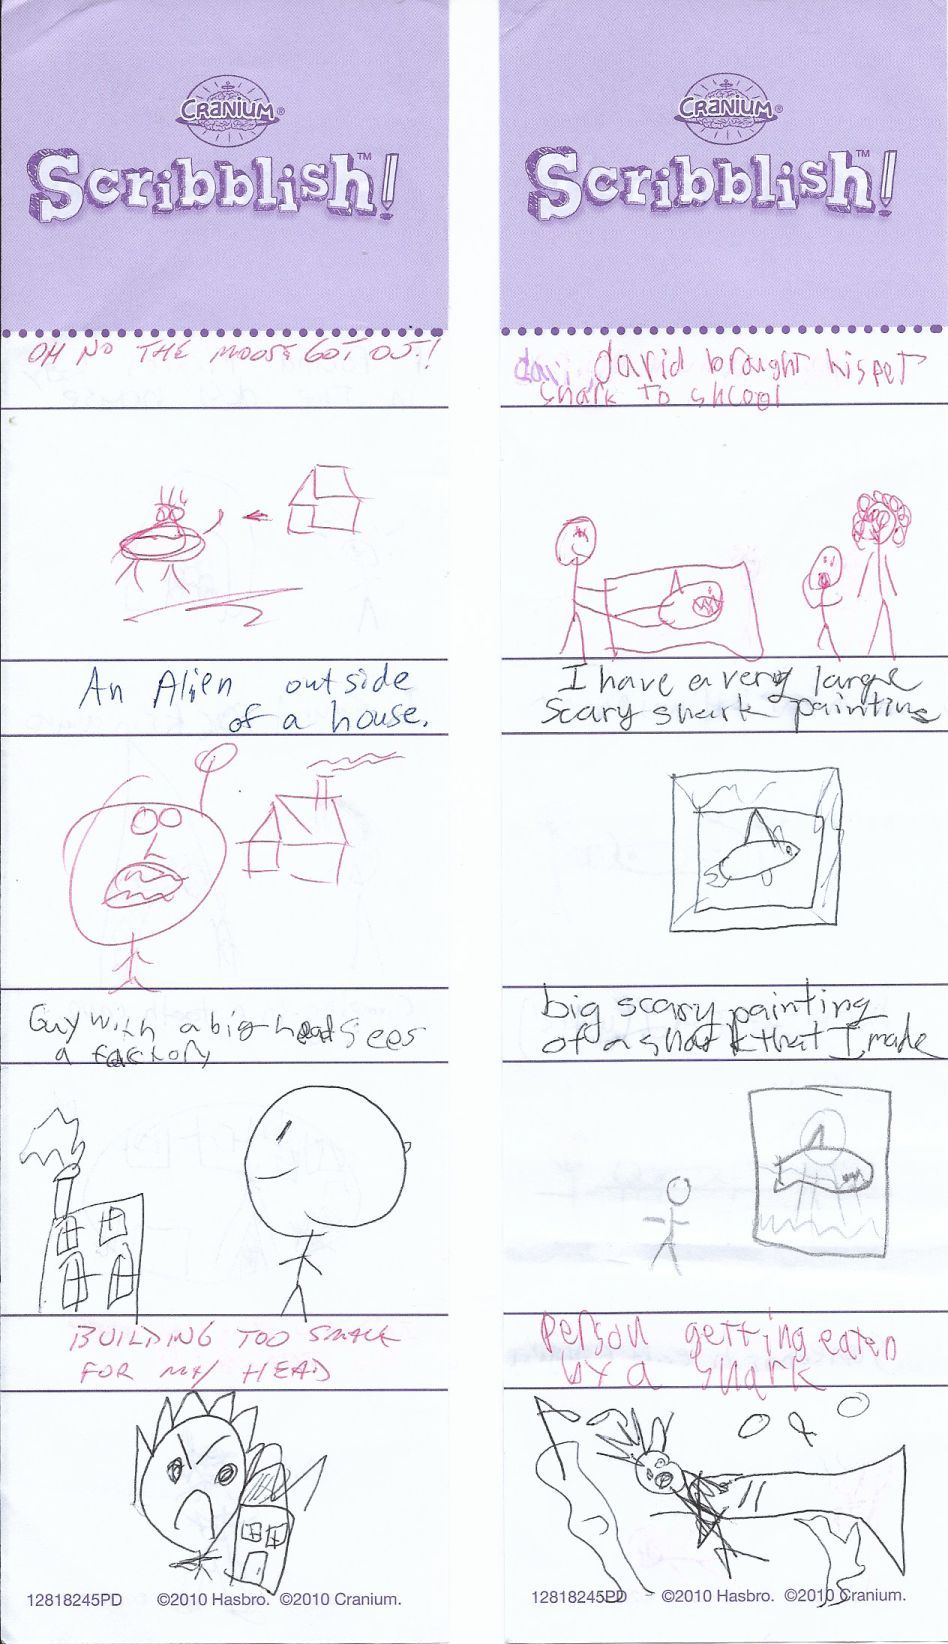 CRANIUM®
Scribblish!™
OH NO THE MOOSE GOT OUT!
An Alien outside
of a house.
Guy with a big head sees
a factory
BUILDING TOO SMALL
FOR MY HEAD
12818245PD ©2010 Hasbro. ©2010 Cranium.
CRANIUM®
Scribblish!™
davi david brought his pet
shark to shcool
I have a very large
scary shark painting
big scary painting
of a shark that I made
Person getting eaten
by a shark
12818245PD ©2010 Hasbro. ©2010 Cranium.